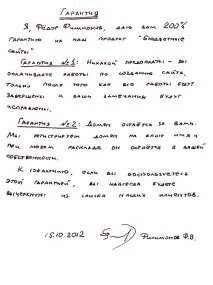 Гарантия
Я, Фёдор Филимонов, даю вам 200%
гарантию на наш продукт "Бюджетные
сайты"
Гарантия №1: Никакой предоплаты - вы
оплачиваете работы по созданию сайта,
только после того как все работы будут
завершены и ваши замечания будут
исправлены.
Гарантия №2: Домен остаётся за вами.
Мы регистрируем домен на ваше имя и
при любом раскладе он остаётся в вашей
собственности.
К сожалению, если вы воспользуетесь
этой гарантией, вы навсегда будете
вычеркнуты из списка наших клиентов.
15.10.2012 Филимонов Ф.В.